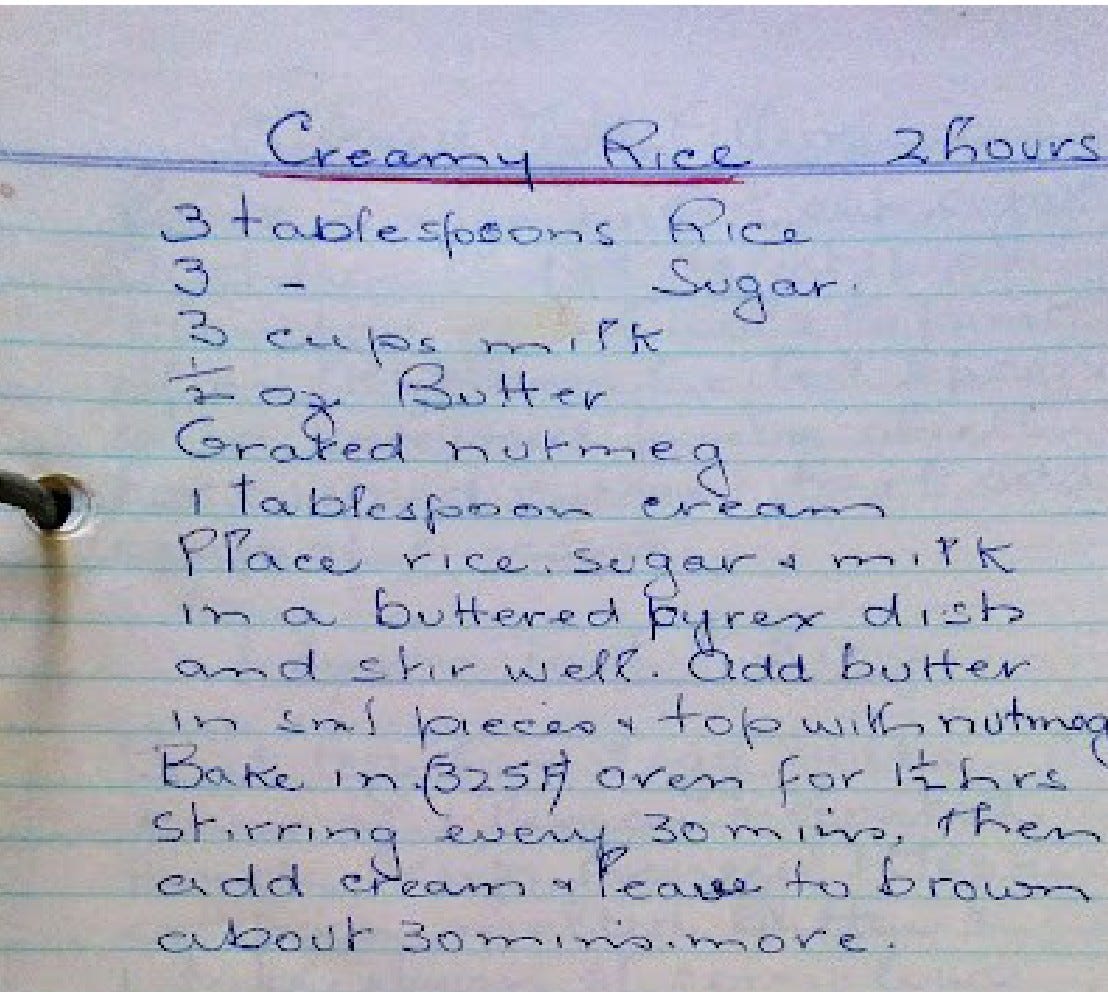 Creamy Rice 2 hours
3 tablespoons Rice
3 - Sugar.
3 cups milk
½ oz Butter
Grated nutmeg
1 tablespoon cream
Place rice. sugar & milk
in a buttered pyrex dish
and stir well. Add butter
in sml pieces & top with nutmeg
Bake in (325F) oven for 1½ hrs
stirring every 30 mins, then
add cream & leave to brown
about 30 mins. more.